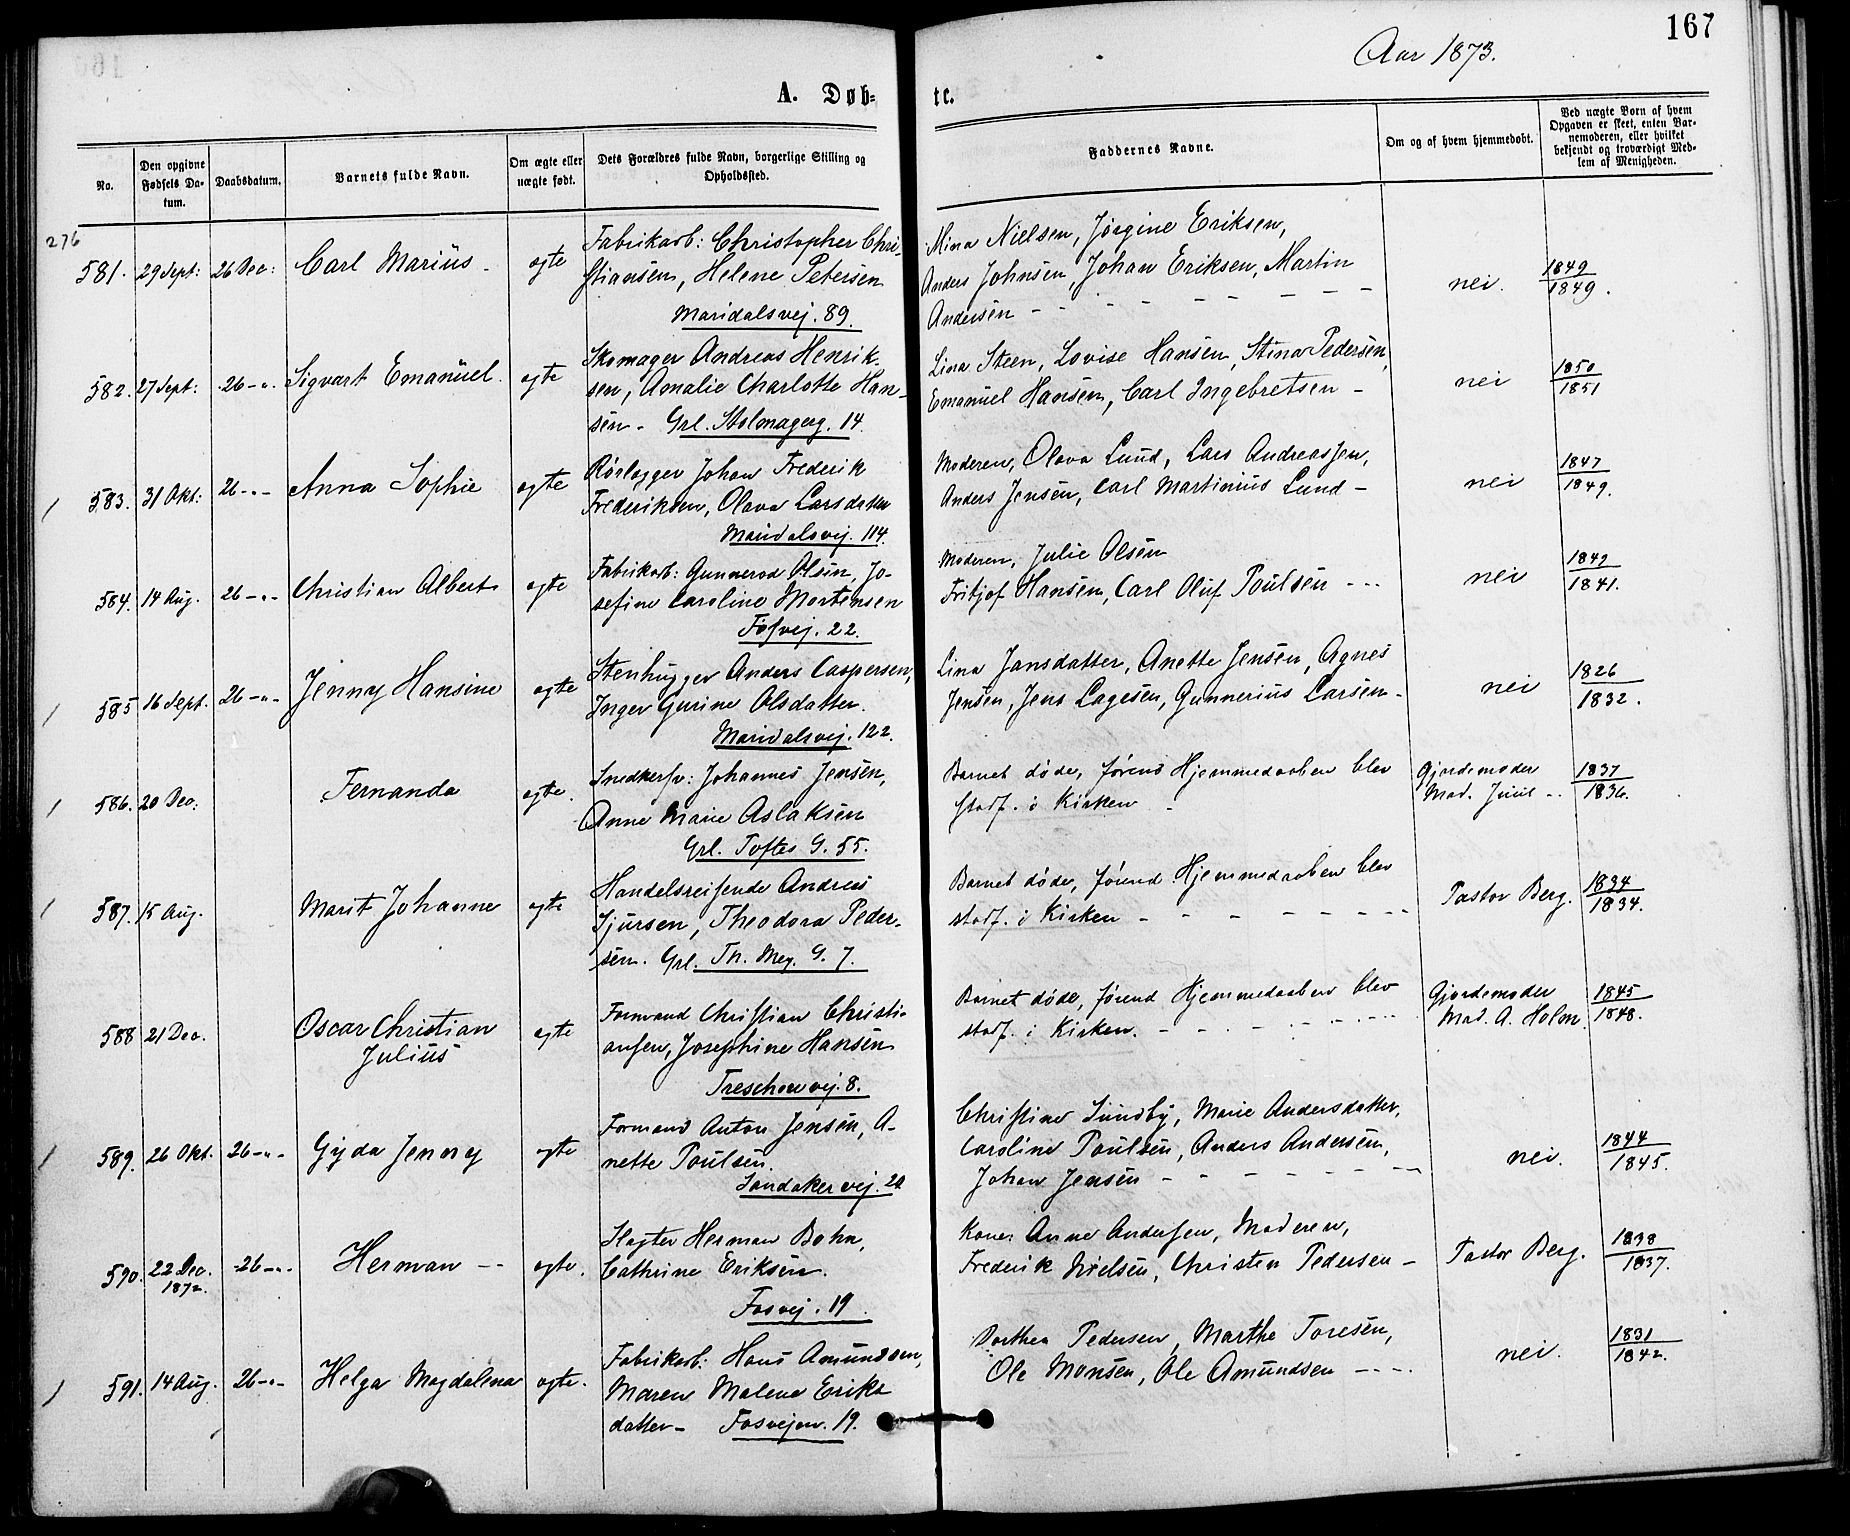 167
Aar 1873.
A. Døb-
te.
No.
Den opgivne Fødsels Da-
tum.
Daabsdatum.
Barnets fulde Navn.
Om ægte eller
uægte født.
Dets Forældres fulde Navn, borgerlige Stilling og
Opholdssted.
Faddernes Navne.
Om og af hvem hjemmedøbt.
Ved uægte Børn af hvem
Opgaven er skeet, enten Bar-
nemoderen, eller hvilket
bekjendt og troværdigt Med-
lem af Menigheden.
276
581. 29 Sept: 26 Dec: Carl Marius - ægte
Fabrikarb: Christopher Chri-
stiansen, Helene Petersen
Maridalsvej. 89.
Mina Nielsen, Jørgine Eriksen,
Anders Johnsen, Johan Eriksen, Martin
Andersen - - - - - - - -
nei.
1849
1849.
582. 27 Sept: 26 -"- Sigvart Emanuel. ægte
Skomager Andreas Henrik-
sen, Amalie Charlotte Han-
sen - Grl. Stolmagerg. 14.
Lina Steen, Lovise Hansen, Stina Pedersen,
Emanuel Hansen, Carl Ingebretsen -
nei
1850
1851
/ 583. 31 Okt: 26 -"- Anna Sophie ægte
Rørlægger Johan Frederik
Frederiksen, Olava Larsdatter
Maridalsvej. 114.
Moderen, Olava Lund, Lars Andreassen,
Anders Jensen, Carl Martinius Lund -
nei
1847
1849.
584. 14 Aug. 26 -"- Christian Albert ægte
Fabrikarb: Gunnerod Olsen, Jo-
sefine Caroline Mortensen
Fosvej. 22.
Moderen, Julie Olsen
Fritjof Hansen, Carl Oluf Poulsen - - -
nei
1849
1841.
/ 585 16 Sept. 26 -"- Jenny Hansine ægte
Stenhugger Anders Caspersen,
Inger Gurine Olsdatter.
Maridalsvej. 122.
Lina Jansdatter, Anette Jensen, Agnes
Jensen, Jens Lagesen, Gunnerius Larsen -
nei
1826
1832.
/ 586. 20 Dec: Fernanda ægte.
Snedkersv: Johannes Jensen,
Anne Marie Aslaksen
Grl. Toftes G. 55.
Barnet døde, førend Hjemmedaaben blev
stadf. i Kirken -
Gjordemoder
Mad. Juul -
1837
1836.
/ 587. 15 Aug. Marit Johanne ægte
Handelsreisende Andreas
Sjursen, Theodora Peder-
sen. Grl. Th. Mey. G. 7.
Barnet døde, førend Hjemmedaaben blev
stadf. i Kirken - - - - - - - -
Pastor Berg.
1834
1834.
588 21 Dec. Oscar Christian
Julius ægte
Formand Christian Christi-
ansen, Josephine Hansen
Treschowvej. 8.
Barnet døde, førend Hjemmedaaben blev
stadf. i Kirken. - - - - - - -
Gjordemoder
Mad. A. Holm.
1845
1848.
/ 589. 26 Okt. 26 -"- Gyda Jenny ægte
Formand Anton Jensen, A-
nette Poulsen.
Sandakervej. 20
Christine Sundby, Marie Andersdatter,
Caroline Poulsen, Anders Andersen,
Johan Jensen - - - - - - -
nei.
1844
1845.
590. 22 Dec. 26 -"- Herman - - ægte.
1872.
Slagter Herman Bohn,
Cathrine Eriksen.
Fosvej. 19.
Kone Anne Andersen, Moderen,
Frederik Nielsen, Christen Pedersen -
Pastor Berg.
1838
1837.
/ 591. 14 Aug. 26 -"- Helga Magdalena ægte.
Fabrikarb: Hans Amundsen,
Maren Malene Eriks
datter - Fosvejen. 19.
Dorthea Pedersen, Marthe Toresen,
Ole Monsen, Ole Amundsen - - - -
nei.
1831
1842.